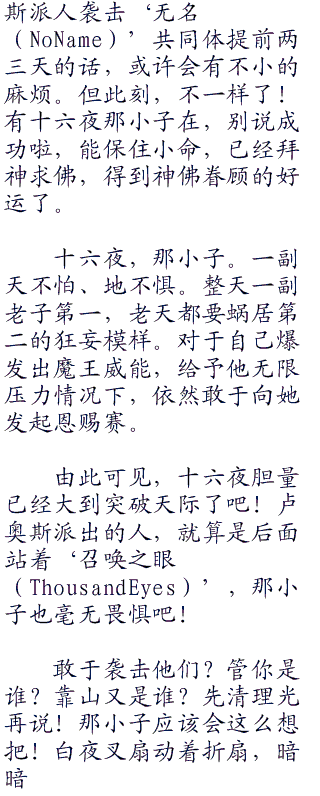 斯派人袭击‘无名
（NoName）’共同体提前两
三天的话，或许会有不小的
麻烦。但此刻，不一样了！
有十六夜那小子在，别说成
功啦，能保住小命，已经拜
神求佛，得到神佛眷顾的好
运了。
十六夜，那小子。一副
天不怕、地不惧。整天一副
老子第一，老天都要蜗居第
二的狂妄模样。对于自己爆
发出魔王威能，给予他无限
压力情况下，依然敢于向她
发起恩赐赛。
由此可见，十六夜胆量
已经大到突破天际了吧！卢
奥斯派出的人，就算是后面
站着‘召唤之眼
（ThousandEyes）’，那小
子也毫无畏惧吧！
敢于袭击他们？管你是
谁？靠山又是谁？先清理光
再说！那小子应该会这么想
把！白夜叉扇动着折扇，暗
暗